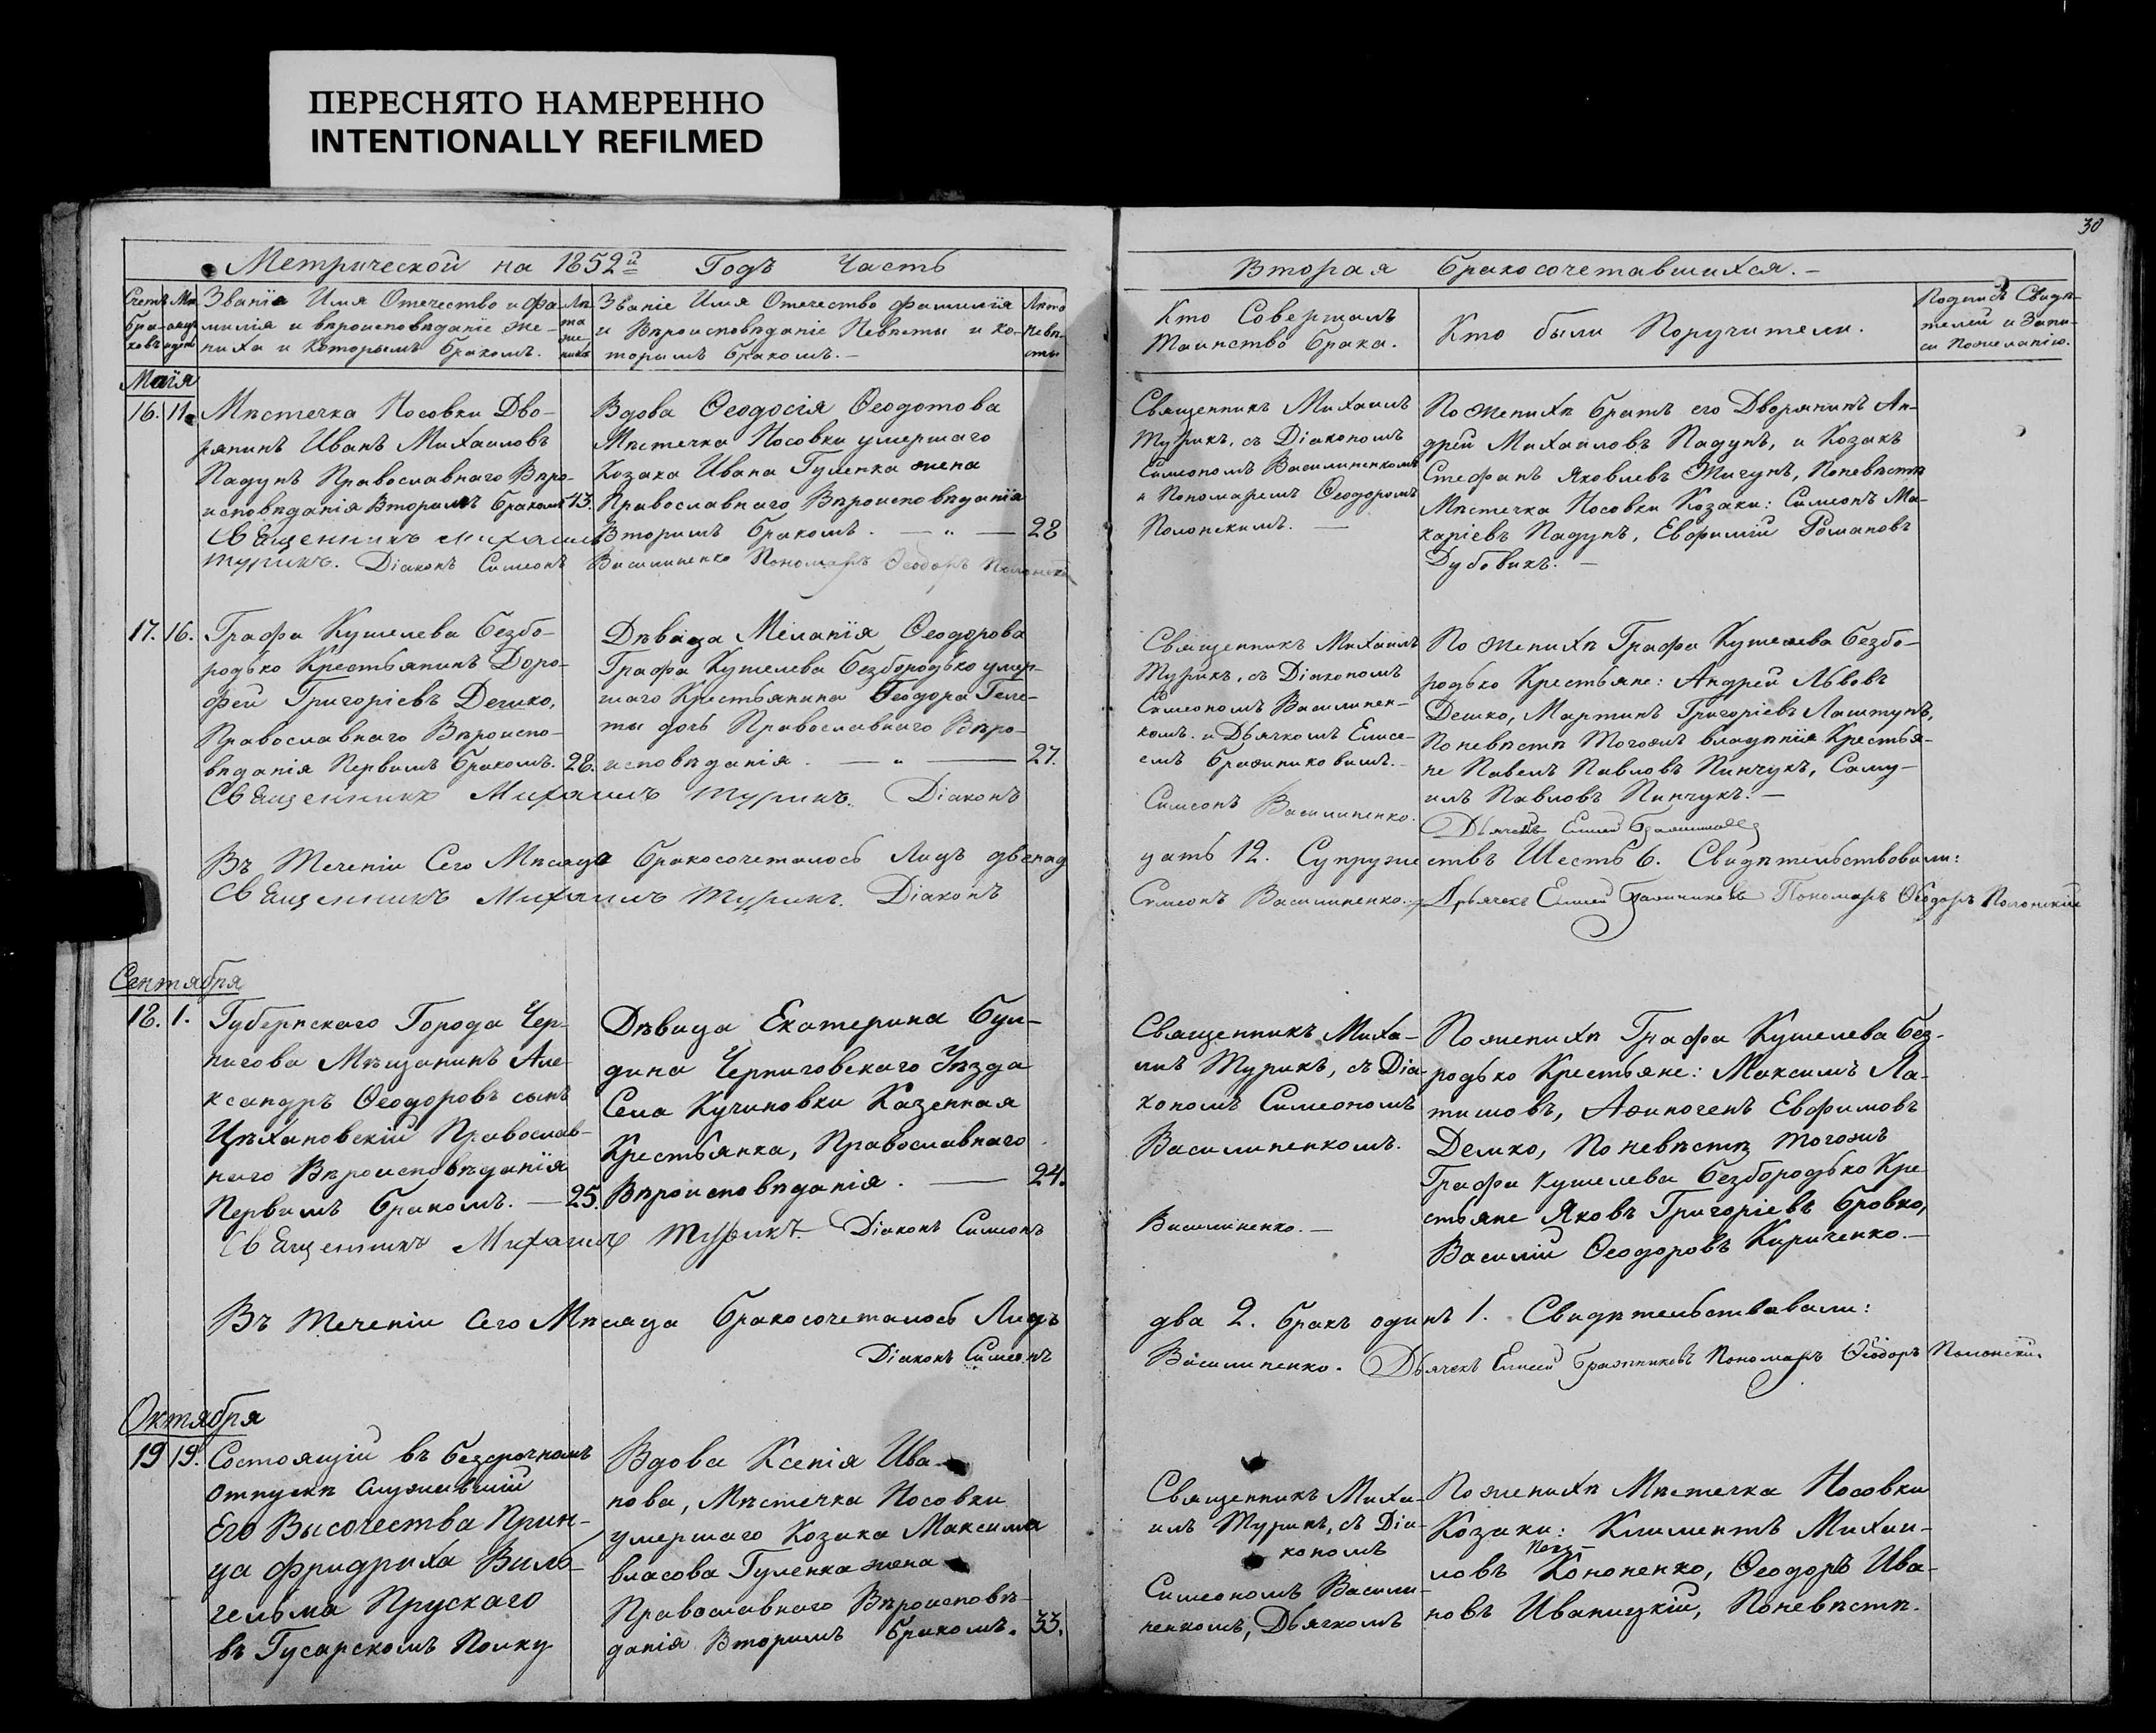 ПЕРЕСНЯТО НАМЕРЕННО
INTENTIONALLY REFILMED
30
Метрической на 1852й Годъ Часть
Вторая бракосочетавшихся.—
Счетъ бра-ковъ
Званїе Имя Отечество и фа-
милія и вѣроисповѣданїе же-
ниха и Которымъ бракомъ.
Лѣ-
та
же-
ниха
Званіе Имя Отечество фамилїя
и Вѣроисповѣданіе Невѣсты и ко-
торымъ бракомъ.—
Лѣта
невѣ-
сты
Кто Совершалъ
Таинство брака.
Кто были Поручители.
Подписъ Свидѣ-
телей и Запи-
си Пожеланію.
Маїя
16. 11.
Мѣстечка Носовки Дво-
рянинъ Иванъ Михаиловъ
Падунъ Православнаго Вѣро-
исповѣданія Вторымъ бракомъ 43.
Вдова Ѳеодосія Ѳеодотова
Мѣстечка Носовки умершаго
Козака Ивана Гуленка жена
Православнаго Вѣроисповѣданїя
Вторымъ бракомъ. — „ — 28
СвЯщенникъ Михаилъ
Турикъ. Діаконъ Симеонъ Василиненко Пономарь Ѳеодоръ Полонскій
Священникъ Михаилъ
Турикъ, съ Діакономъ
Симеономъ Василиненкомъ
и Пономаремъ Ѳеодоромъ
Полонскимъ. —
По женихѣ братъ его Дворянинъ Ан-
дрей Михаиловъ Падунъ, и Козакъ
Стефанъ Яковлевъ Жигунъ, Поневѣстѣ
Мѣстечка Носовки Козаки: Симеонъ Ма-
каріевъ Падунъ, Евфимій Романовъ
Дубовикъ. —
17. 16.
Графа Кушелева безбо-
родько Крестьянинъ Доро-
фей Григоріевъ Демко,
Православнаго Вѣроиспо-
вѣданія Первымъ бракомъ. 28.
Дѣвица Меланїя Ѳеодорова
Графа Кушелева безбородько умер-
шаго Крестьянина Ѳеодора Геле-
ты дочь Православнаго Вѣро-
исповѣданія. — „ — 27.
СвЯщенникъ Михаилъ Турикъ. Діаконъ
Священникъ Михаилъ
Турикъ, съ Діакономъ
Симеономъ Василинен-
комъ. и Дьячкомъ Елисе-
емъ бражниковимъ.
Симеонъ Василиненко.
По женихѣ Графа Кушелева безбо-
родько Крестьяне: Андрей Львовъ
Демко, Мартинъ Григоріевъ Лаштунъ,
Поневѣстѣ Тогожъ владѣнїя Крестья-
не Павелъ Павловъ Пинчукъ, Саму-
илъ Павловъ Пинчукъ. —
Дьячекъ Елисей Бражниковъ
Въ Теченіи Сего Мѣсяца бракосочеталось Лицъ двѣнад
цать 12. Супружествъ Шесть 6. Свидѣтельствовали:
СвЯщенникъ Михаилъ Турикъ. Діаконъ
Симеонъ Василиненко. Дьячекъ Елисей Бражниковъ Пономарь Ѳеодоръ Полонскій
Сентября
18. 1.
Губернскаго Города Чер-
нигова Мѣщанинъ Але-
ксандръ Ѳеодоровъ сынъ
Цѣхановскій Православ-
наго Вѣроисповѣданїя
Первымъ бракомъ. — 25.
Дѣвица Екатерина бул-
дина Черниговскаго Уѣзда
Села Кучиновки Казенная
Крестьянка, Православнаго
Вѣроисповѣданія. — 24.
СвЯщенникъ Михаилъ Турикъ. Діаконъ Симеонъ
Священникъ Миха-
илъ Турикъ, съ Діа-
кономъ Симеономъ
Василиненкомъ.
Василиненко. —
Поженихѣ Графа Кушелева без-
родько Крестьяне: Максимъ Ла-
тишовъ, Афиногенъ Евфимовъ
Демко, Поневѣстѣ Тогожъ
Графа Кушелева безбородько Кре
стьяне Яковъ Григоріевъ бровко,
Василій Ѳеодоровъ Кириченко.—
Въ Теченіи Сего Мѣсяца бракосочеталось Лицъ
два 2. бракъ одинъ 1. Свидѣтельствовали:
Діаконъ Симеонъ
Василиненко. Дьячекъ Елисей Бражниковъ Пономарь Ѳеодоръ Полонскій
Октября
19 19.
Состоящій въ безсрочномъ
отпускѣ Служившій
Его Высочества Прин-
ца Фридриха Виль-
гельма Прускаго
въ Гусарскомъ Полку
Вдова Ксенія Ива-
нова, Мѣстечка Носовки
умершаго Козака Максима
власова Гуленка жена
Православнаго Вѣроисповѣ-
данія Вторымъ бракомъ. 33.
Священникъ Миха-
илъ Турикъ, съ Діа-
кономъ
Симеономъ Васили-
ненкомъ, Дьячкомъ
Поженихѣ Мѣстечка Носовки
Козаки: Климентъ Михаи-
ловъ Кононенко, Ѳеодоръ Ива-
новъ Иваницкій, Поневѣстѣ.